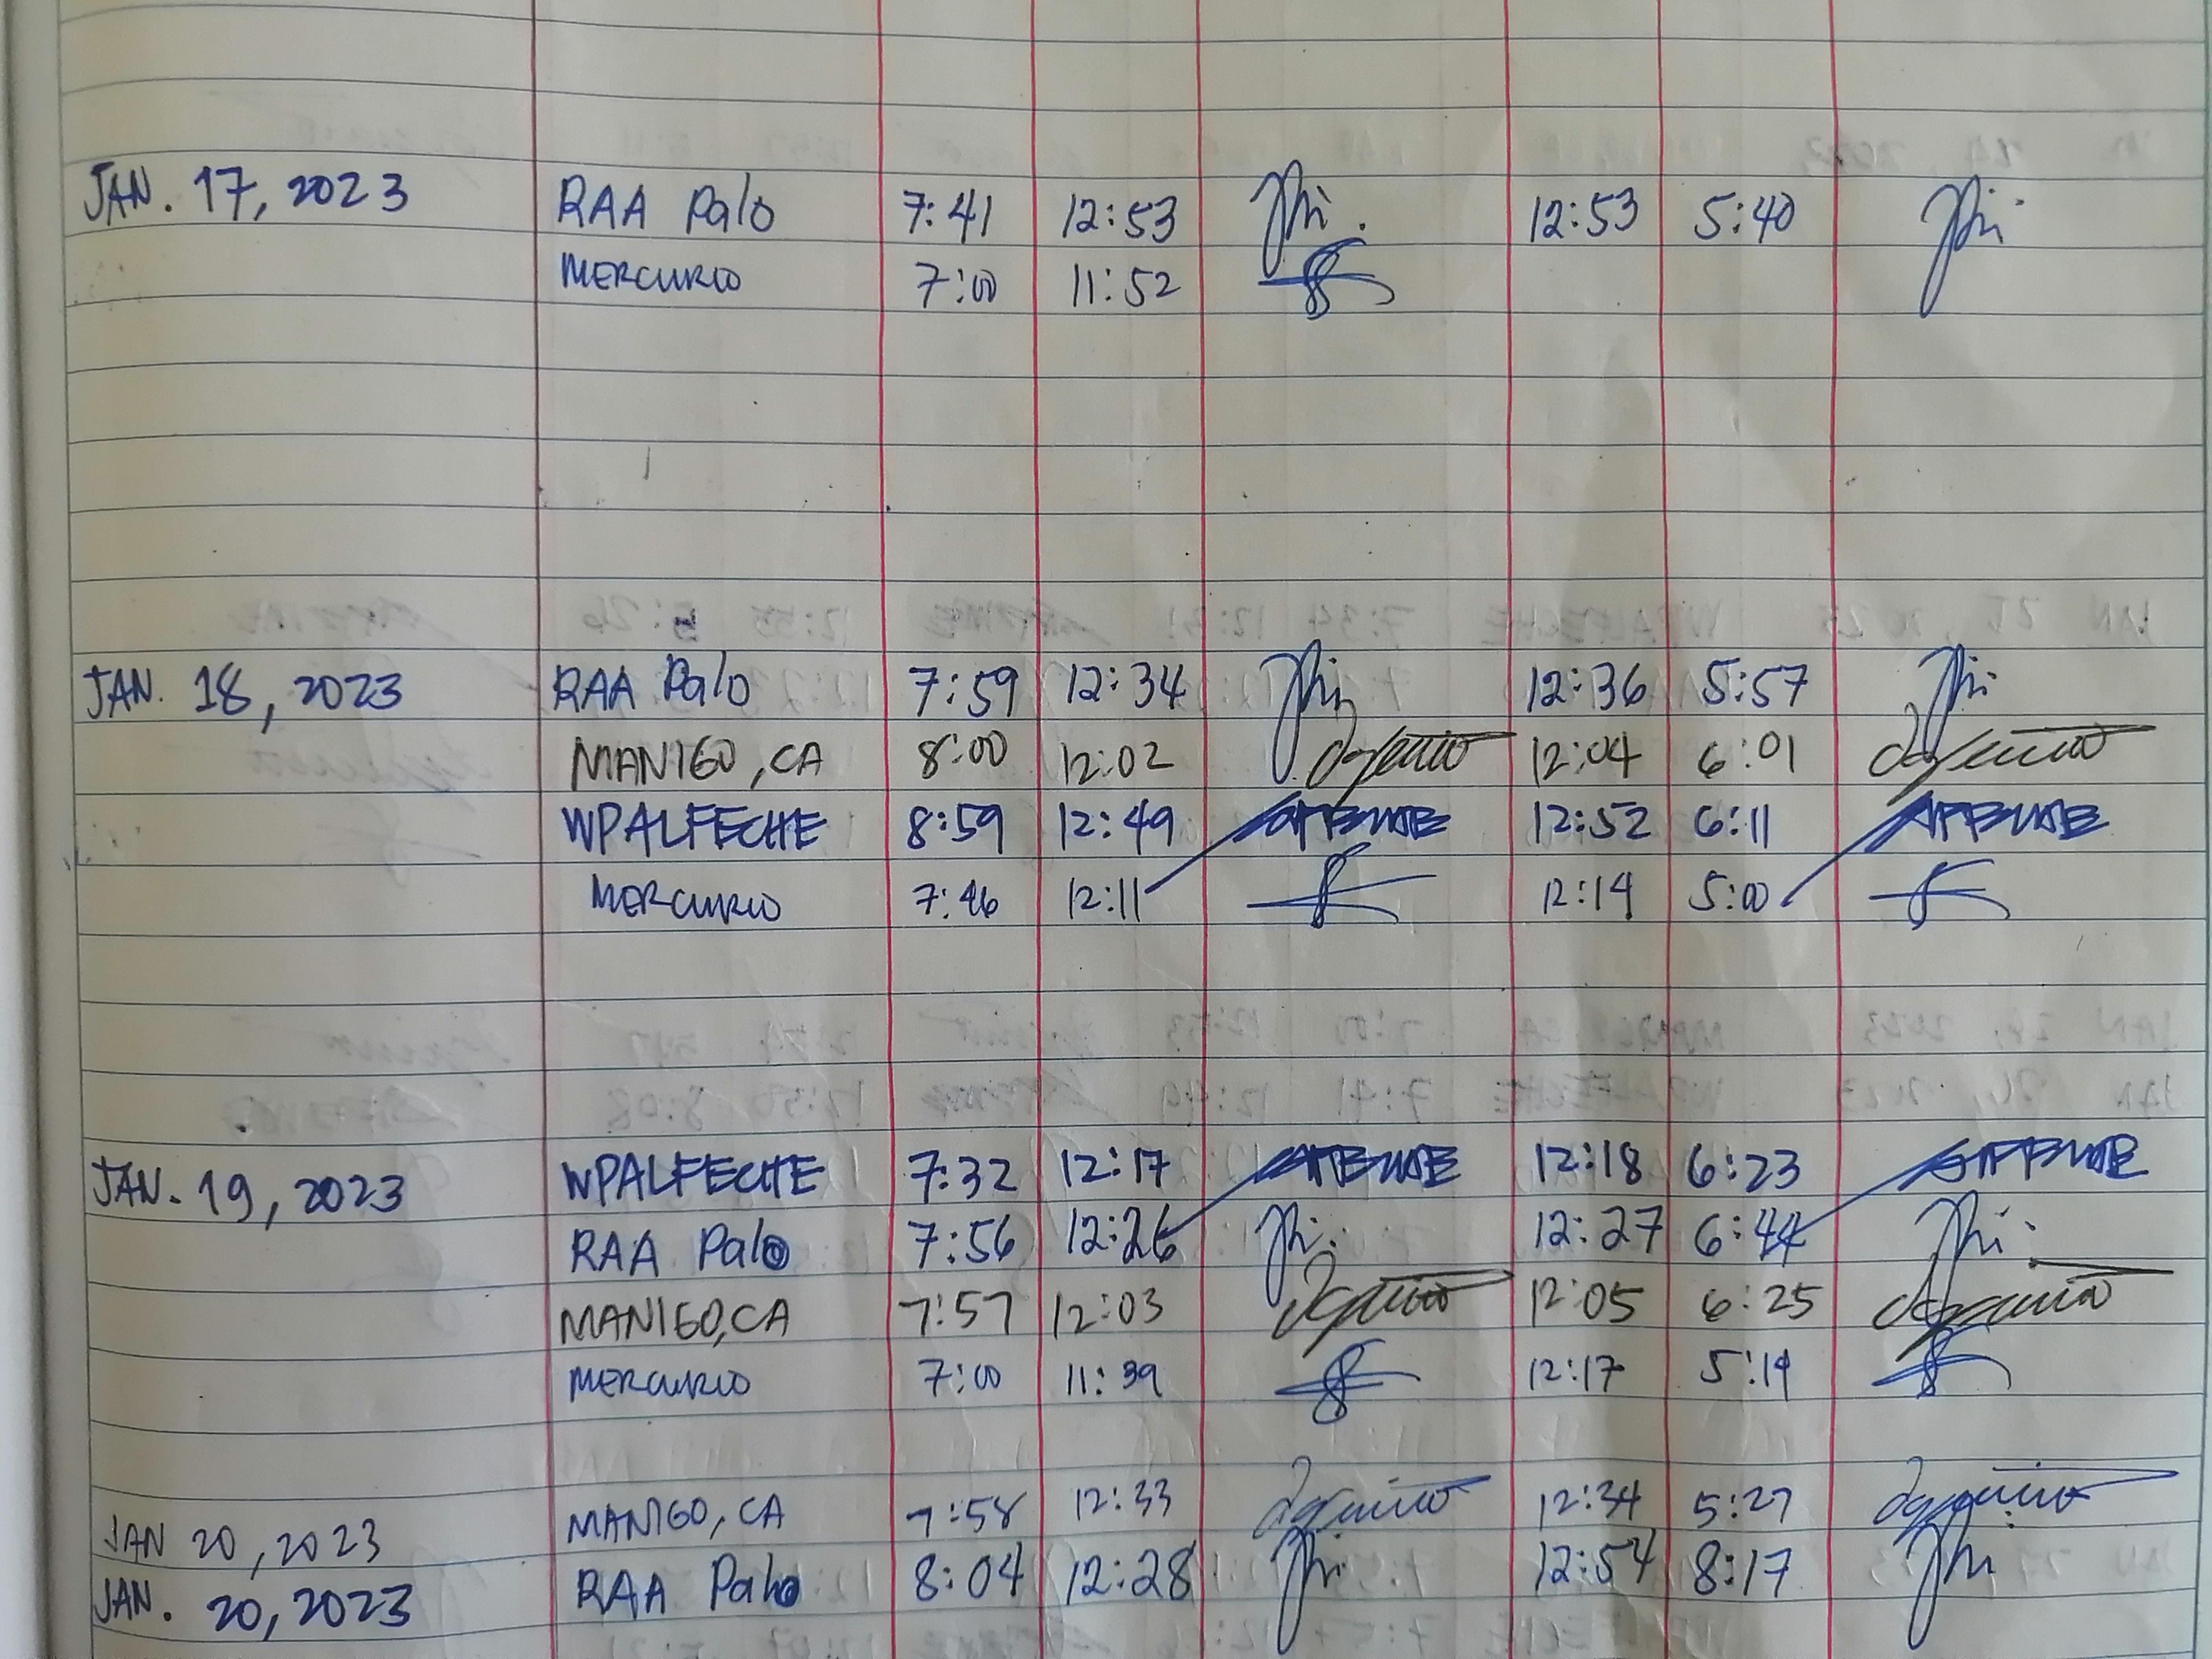 JAN. 17, 2023 RAA Palo 7:41 12:53 12:53 5:40
MERCURIO 7:00 11:52
JAN. 18, 2023 RAA Palo 7:59 12:34 12:36 5:57
MANIGO, CA 8:00 12:02 12:04 6:01
WPALFECHE 8:59 12:49 12:52 6:11
MERCURIO 7:46 12:11 12:14 5:00
JAN. 19, 2023 WPALFECHE 7:32 12:17 12:18 6:23
RAA Palo 7:56 12:26 12:27 6:44
MANIGO, CA 7:57 12:03 12:05 6:25
MERCURIO 7:00 11:39 12:17 5:14
JAN 20, 2023 MANIGO, CA 7:58 12:33 12:34 5:27
JAN. 20, 2023 RAA Palo 8:04 12:28 12:54 8:17